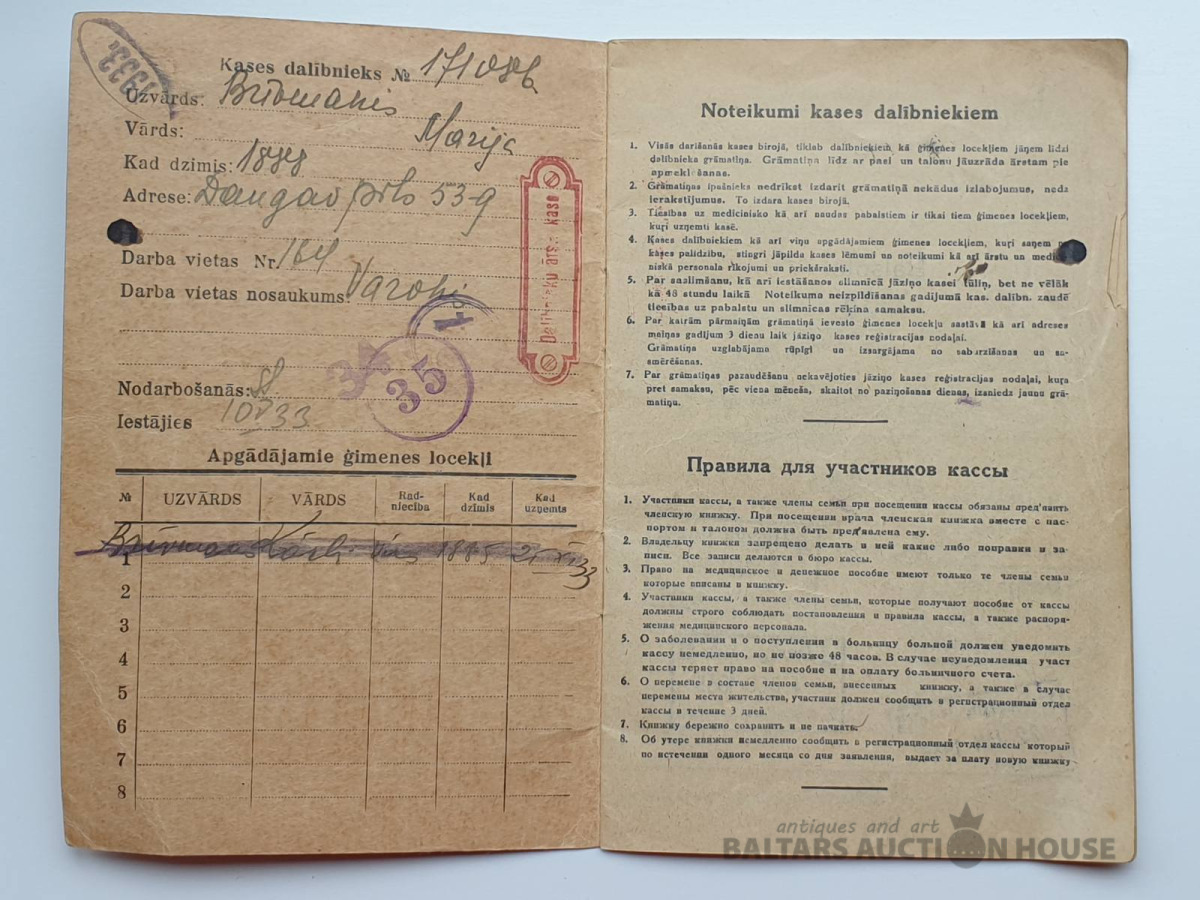 1933.
Kases dalībnieks № 171086
Uzvārds:
Vārds: Marija
Kad dzimis: 1888
Adrese: Daugavpils 53-9
Darba vietas Nr. 164
Darba vietas nosaukums:
1
34
35
Dalībnieku ārst. kase
Nodarbošanās:
Iestājies 10 V 33
Apgādājamie ģimenes locekļi
№ UZVĀRDS VĀRDS Radniecība Kad dzimis Kad uzņemts
1 1885 33
2
3
4
5
6
7
8
Noteikumi kases dalībniekiem
1. Visās darīšanās kases birojā, tiklab dalībniekiem kā ģimenes locekļiem jāņem līdzi
dalībnieka grāmatiņa. Grāmatiņa līdz ar pasi un talonu jāuzrāda ārstam pie
apmeklēšanas.
2. Grāmatiņas īpašnieks nedrīkst izdarīt grāmatiņā nekādus izlabojumus, nedz
ierakstījumus. To izdara kases birojā.
3. Tiesības uz medicinisko kā arī naudas pabalstiem ir tikai tiem ģimenes locekļiem,
kuŗi uzņemti kasē.
4. Kases dalībniekiem kā arī viņu apgādājamiem ģimenes locekļiem, kuŗi saņem no
kases palīdzību, stingri jāpilda kases lēmumi un noteikumi kā arī ārstu un medi
niskā personala rīkojumi un priekšraksti.
5. Par saslimšanu, kā arī iestāšanos slimnicā jāziņo kasei tūlīn, bet ne vēlāk
kā 48 stundu laikā Noteikuma neizpildīšanas gadījumā kas. dalībn. zaudē
tiesības uz pabalstu un slimnicas rēķina samaksu.
6. Par katrām pārmaiņām grāmatiņā ievesto ģimenes locekļu sastāvā kā arī adreses
maiņas gadījum 3 dienu laik jāziņo kases reģistracijas nodaļai.
Grāmatiņa uzglabājama rūpīgi un izsargājama no saburzīšanas un sa-
smērēšanas.
7. Par grāmatiņas pazaudēšanu nekavējoties jāziņo kases reģistracijas nodaļai, kuŗa
pret samaksu, pēc viena mēneša, skaitot no paziņošanas dienas, izsniedz jaunu grā-
matiņu.
Правила для участников кассы
1. Участники кассы, а также члены семьи при посещении кассы обязаны пред'явить
членскую книжку. При посещении врача членская книжка вместе с пас-
портом и талоном должна быть пред'явлена ему.
2. Владельцу книжки запрещено делать в ней какие либо поправки и за-
писи. Все записи делаются в бюро кассы.
3. Право на медицинское и денежное пособие имеют только те члены семьи
которые вписаны в книжку.
4. Участники кассы, а также члены семьи, которые получают пособие от кассы
должны строго соблюдать постановления и правила кассы, а также распоря-
жения медицинского персонала.
5. О заболевании и о поступлении в больницу больной должен уведомить
кассу немедленно, но не позже 48 часов. В случае неуведомления участ
кассы теряет право на пособие и на оплату больничного счета.
6. О перемене в составе членов семьи, внесенных книжку, а также в случае
перемены места жительства, участник должен сообщить в регистрационный отдел
кассы в течение 3 дней.
7. Книжку бережно сохранить и не пачкать.
8. Об утере книжки немедленно сообщить в регистрационный отдел кассы который
по истечении одного месяца со дня заявления, выдает за плату новую книжку
antiques and art
BALTARS AUCTION HOUSE